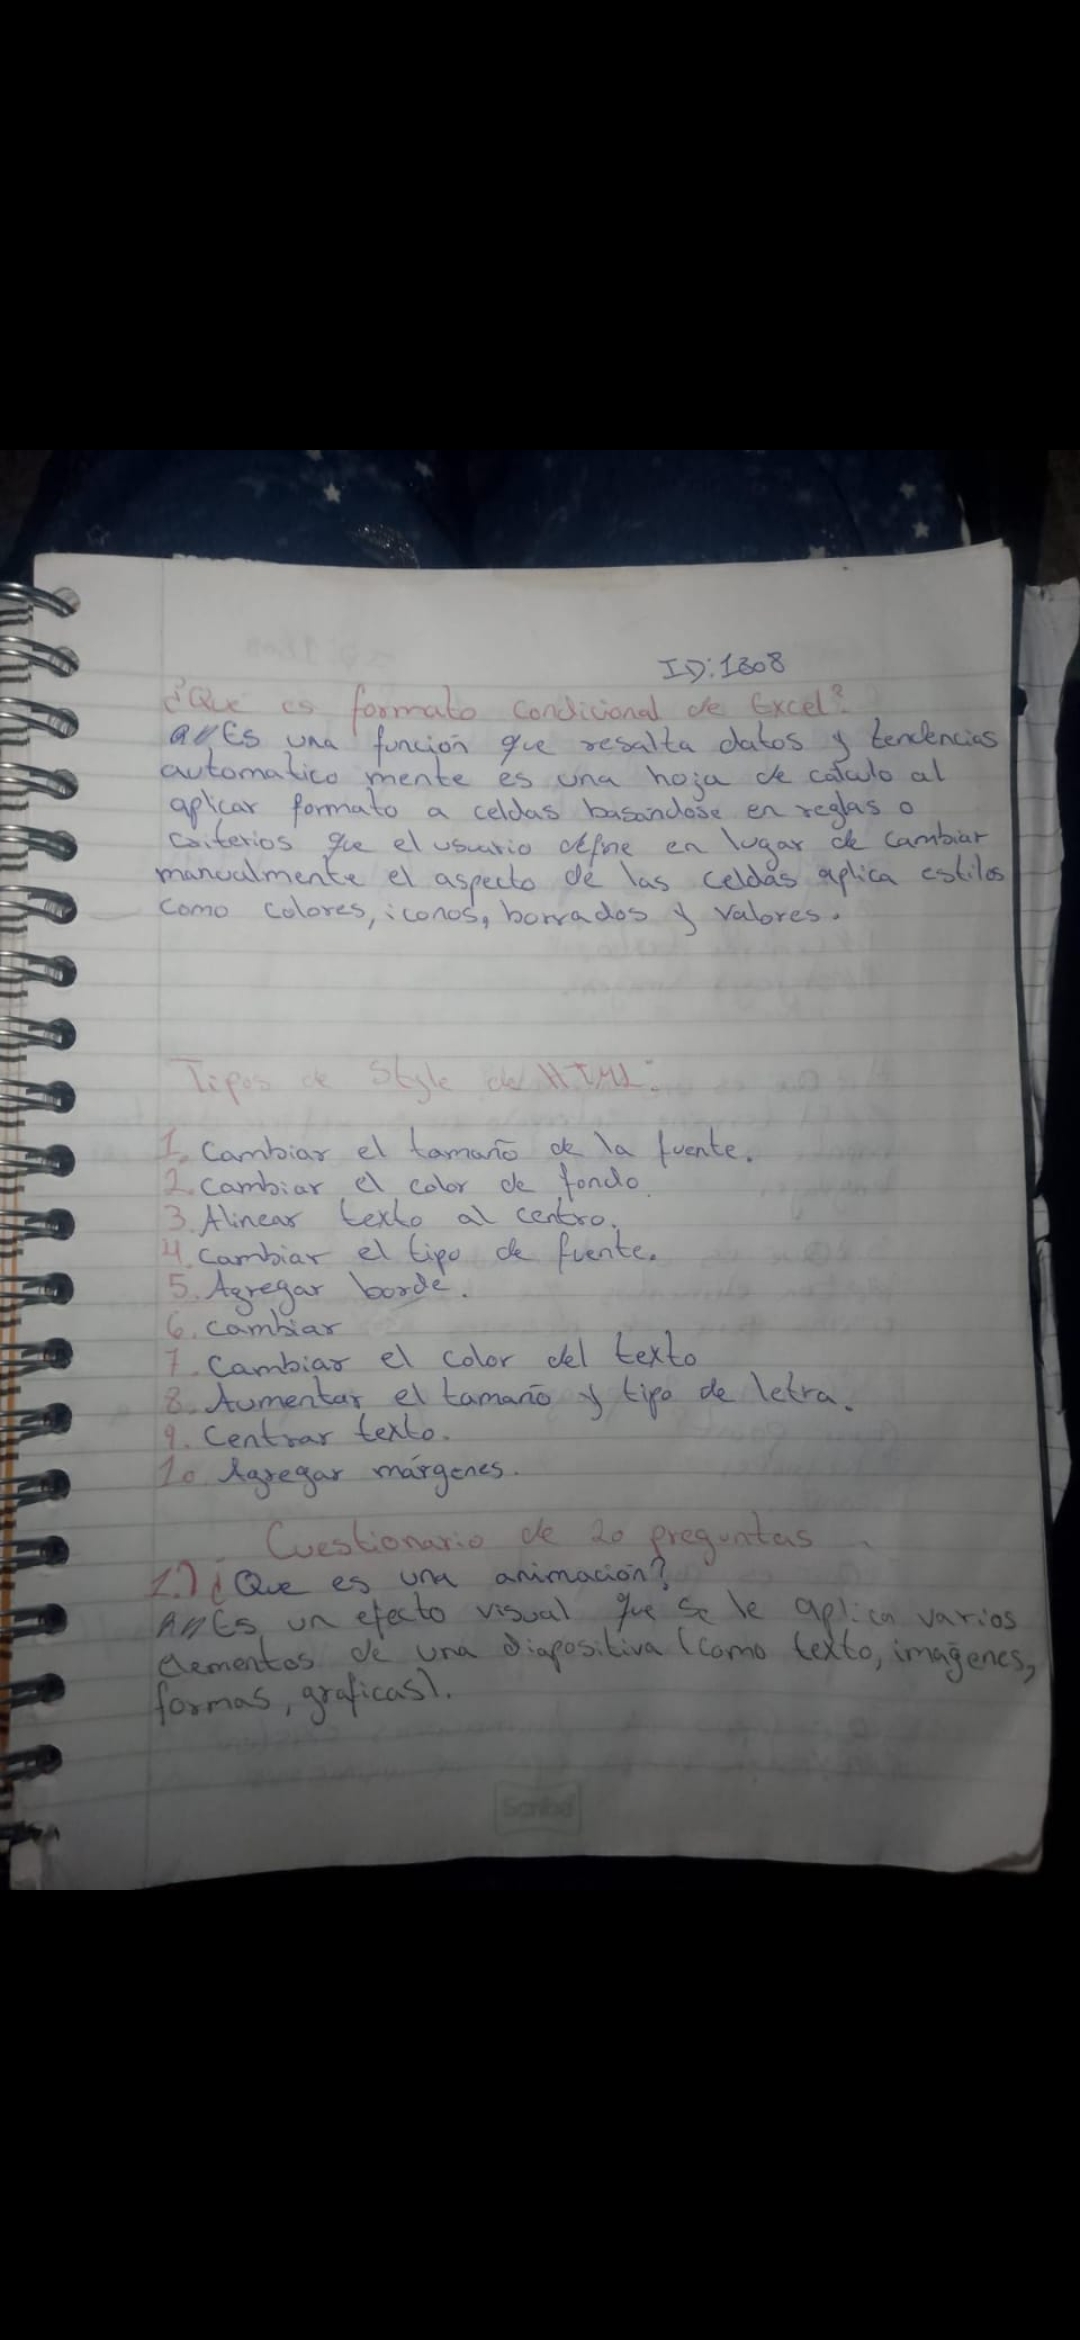 ID:1308
¿Que es formato condicional de Excel?
R// Es una función que resalta datos y tendencias
automatico mente es una hoja de calculo al
aplicar formato a celdas basándose en reglas o
criterios que el usuario define en lugar de cambiar
manualmente el aspecto de las celdas aplica estilos
como colores, iconos, borrados y valores.
Tipos de Style de HTML:
1. Cambiar el tamaño de la fuente.
2. Cambiar el color de fondo.
3. Alinear texto al centro.
4. Cambiar el tipo de fuente.
5. Agregar borde.
6. Cambiar
7. Cambiar el color del texto
8. Aumentar el tamaño y tipo de letra.
9. Centrar texto.
10 Agregar márgenes.
Cuestionario de 20 preguntas
1.) ¿Que es una animación?
R// Es un efecto visual que se le aplica varios
elementos de una diapositiva (como texto, imagenes,
formas, graficas).
Scribe